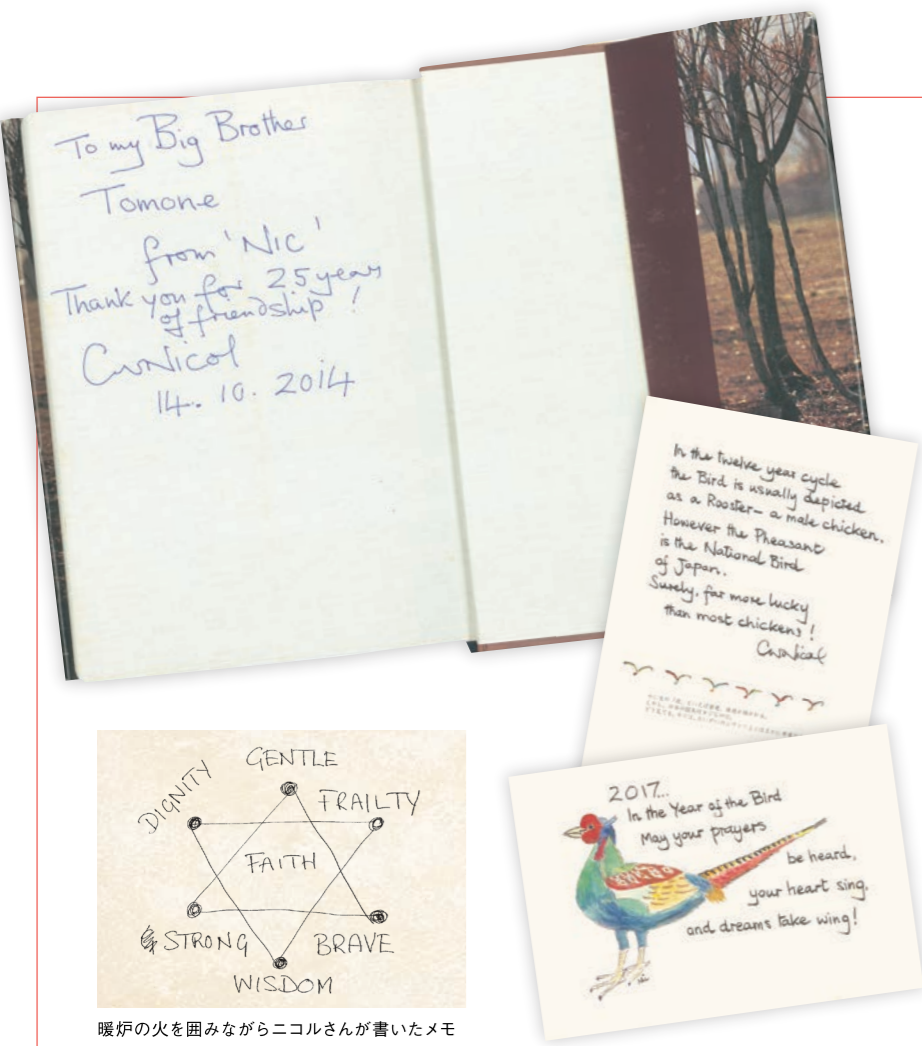 To my Big Brother
Tomone
from 'NIC'
Thank you for 25 years
of friendship !
CWNicol
14. 10. 2014
In the twelve year cycle
the Bird is usually depicted
as a Rooster— a male chicken.
However the Pheasant
is the National Bird
of Japan.
Surely, far more lucky
than most chickens !
CWNicol
2017...
In the Year of the Bird
May your prayers
be heard,
your heart sing,
and dreams take wing!
GENTLE
DIGNITY
FRAILTY
FAITH
STRONG
BRAVE
WISDOM
暖炉の火を囲みながらニコルさんが書いたメモ